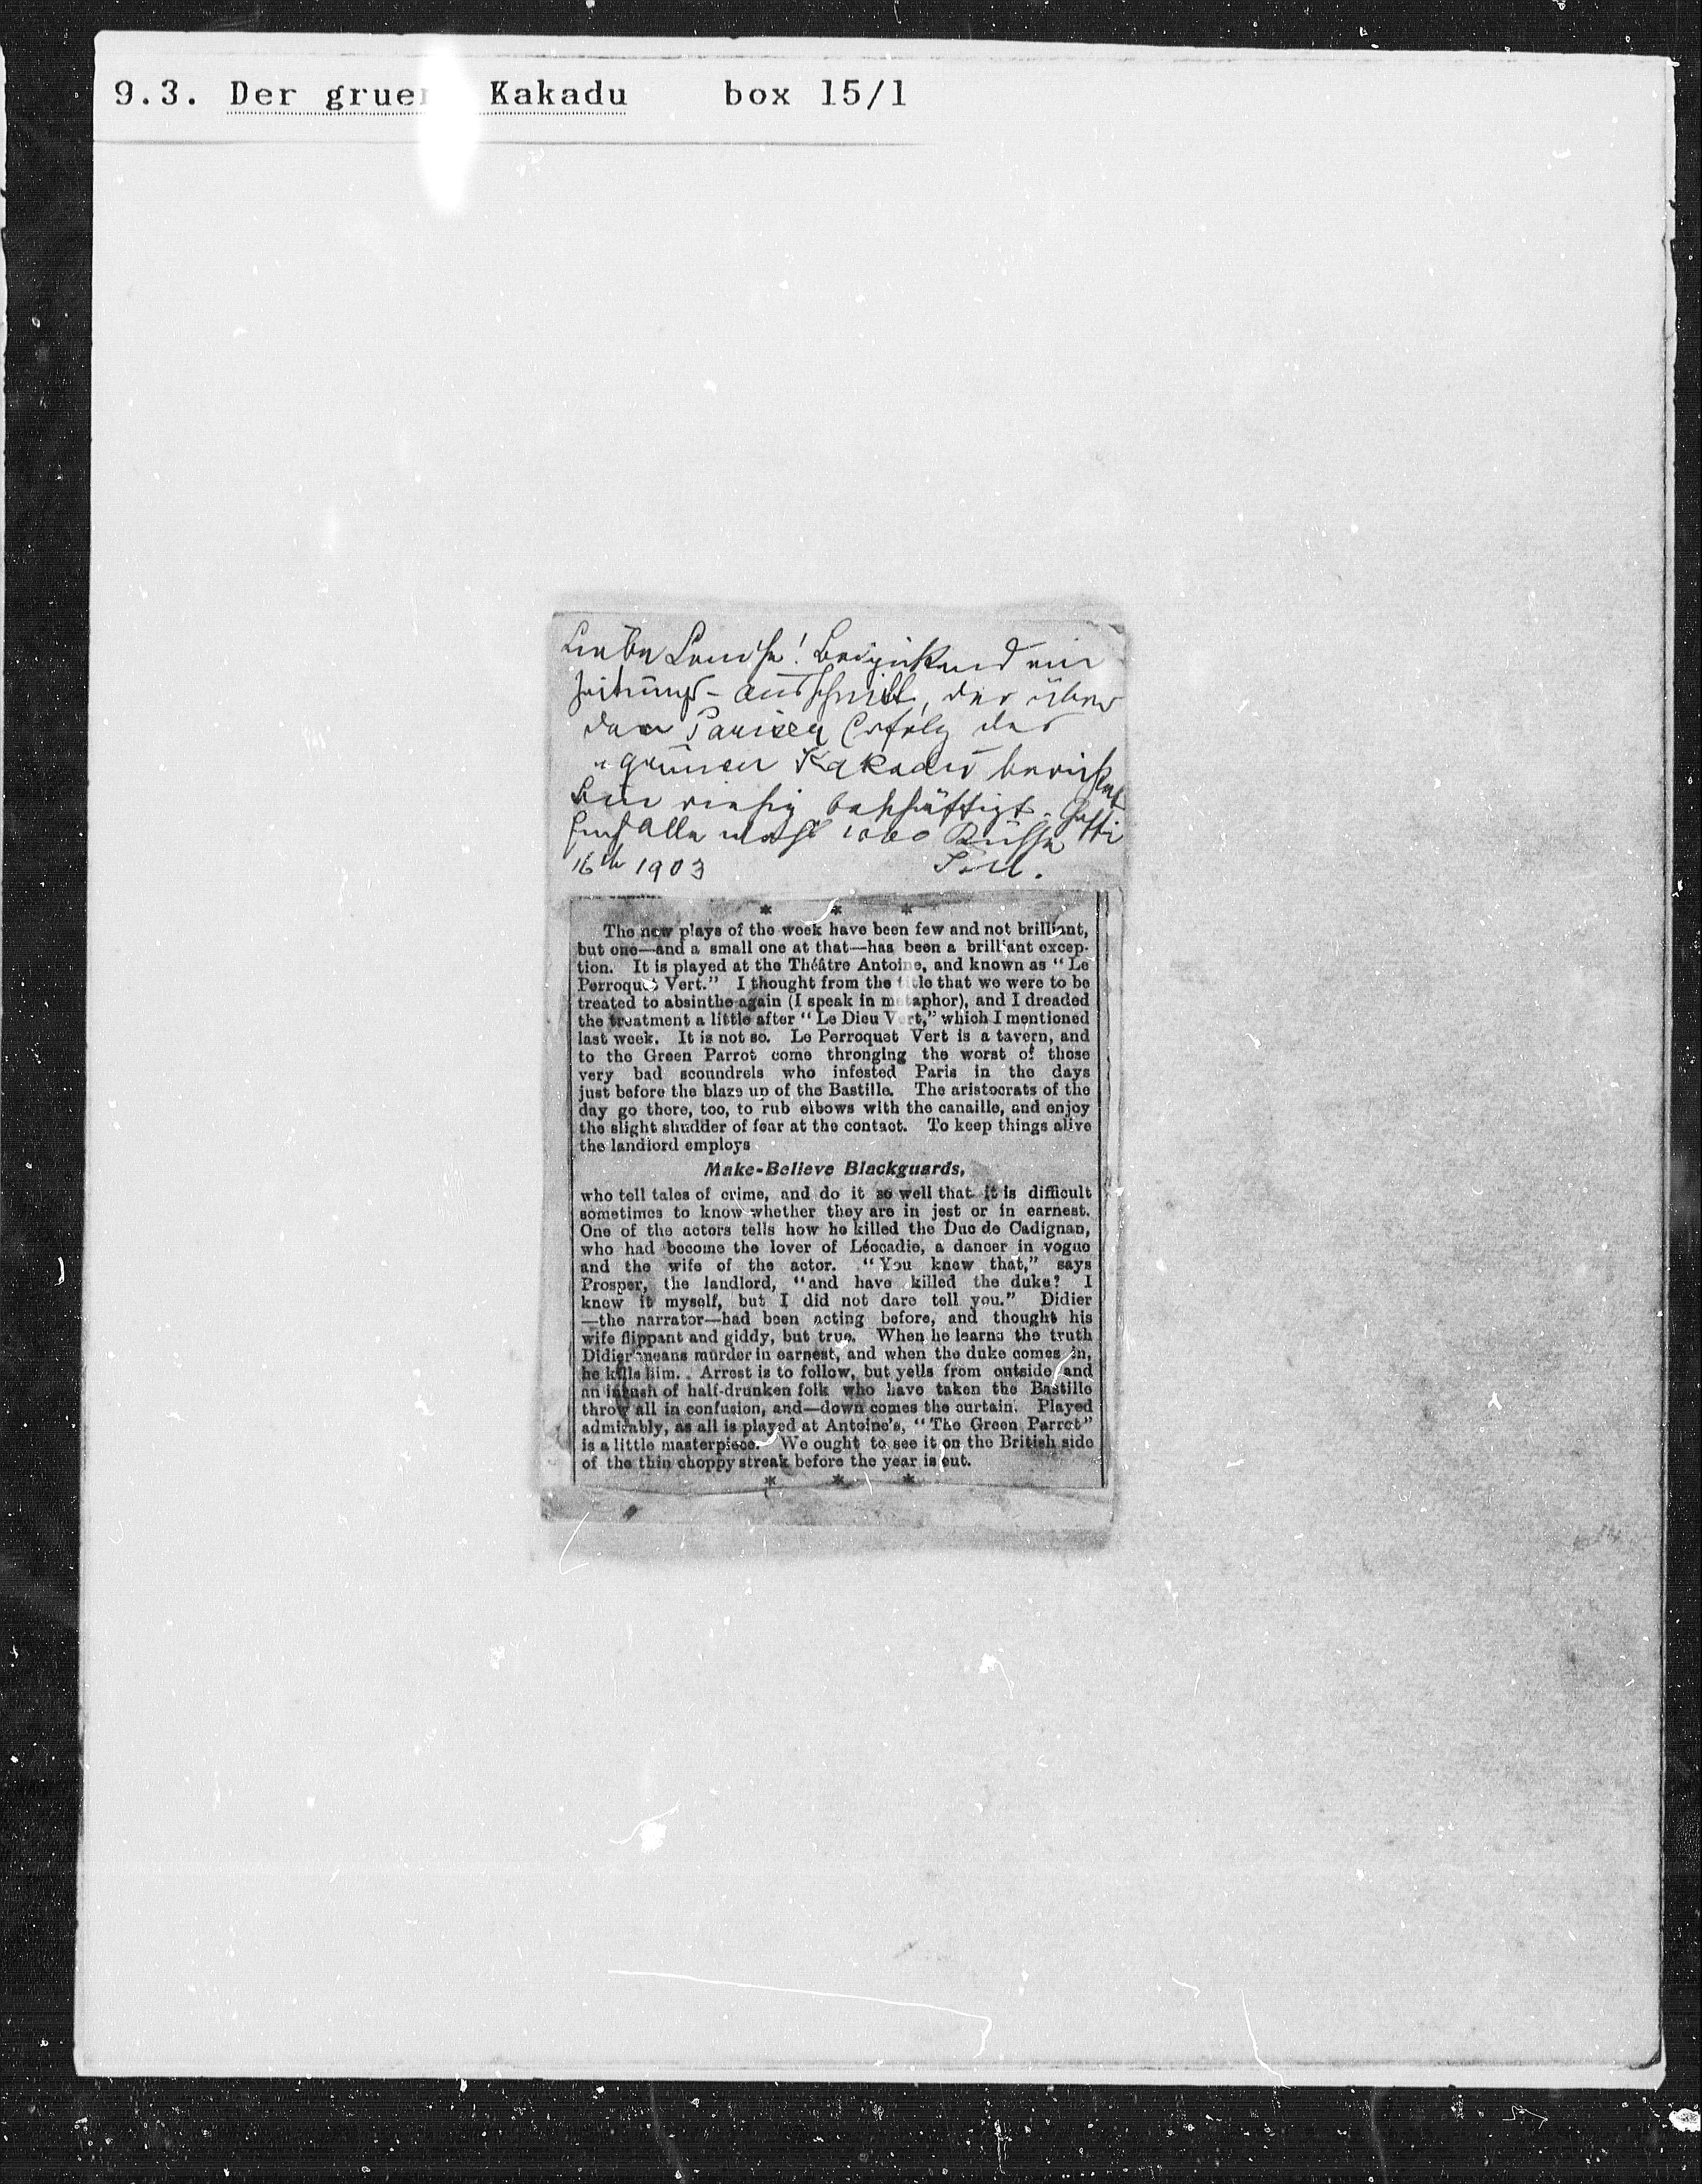 9.3. Der gruen Kakadu box 15/1
Liebe Louise! Beigehend ein
Zeitungs-Ausschnitt, der über
den Pariser Erfolg des
"grünen Kakadu berichtet
Bin riesig beschäftigt.
Euch Alle 1000 Küsse
16th 1903
* * *
The new plays of the week have been few and not brilliant,
but one—and a small one at that—has been a brilliant excep-
tion. It is played at the Théâtre Antoine, and known as "Le
Perroquet Vert." I thought from the title that we were to be
treated to absinthe again (I speak in metaphor), and I dreaded
the treatment a little after "Le Dieu Vert," which I mentioned
last week. It is not so. Le Perroquet Vert is a tavern, and
to the Green Parrot come thronging the worst of those
very bad scoundrels who infested Paris in the days
just before the blaze up of the Bastille. The aristocrats of the
day go there, too, to rub elbows with the canaille, and enjoy
the slight shudder of fear at the contact. To keep things alive
the landlord employs
Make-Believe Blackguards,
who tell tales of crime, and do it so well that it is difficult
sometimes to know whether they are in jest or in earnest.
One of the actors tells how he killed the Duc de Cadignan,
who had become the lover of Léocadie, a dancer in vogue
and the wife of the actor. "You knew that," says
Prosper, the landlord, "and have killed the duke? I
knew it myself, but I did not dare tell you." Didier
—the narrator—had been acting before, and thought his
wife flippant and giddy, but true. When he learns the truth
Didier means murder in earnest, and when the duke comes in,
he kills him. Arrest is to follow, but yells from outside and
an inrush of half-drunken folk who have taken the Bastille
throw all in confusion, and—down comes the curtain. Played
admirably, as all is played at Antoine's, "The Green Parrot"
is a little masterpiece. We ought to see it on the British side
of the thin choppy streak before the year is out.
* * *